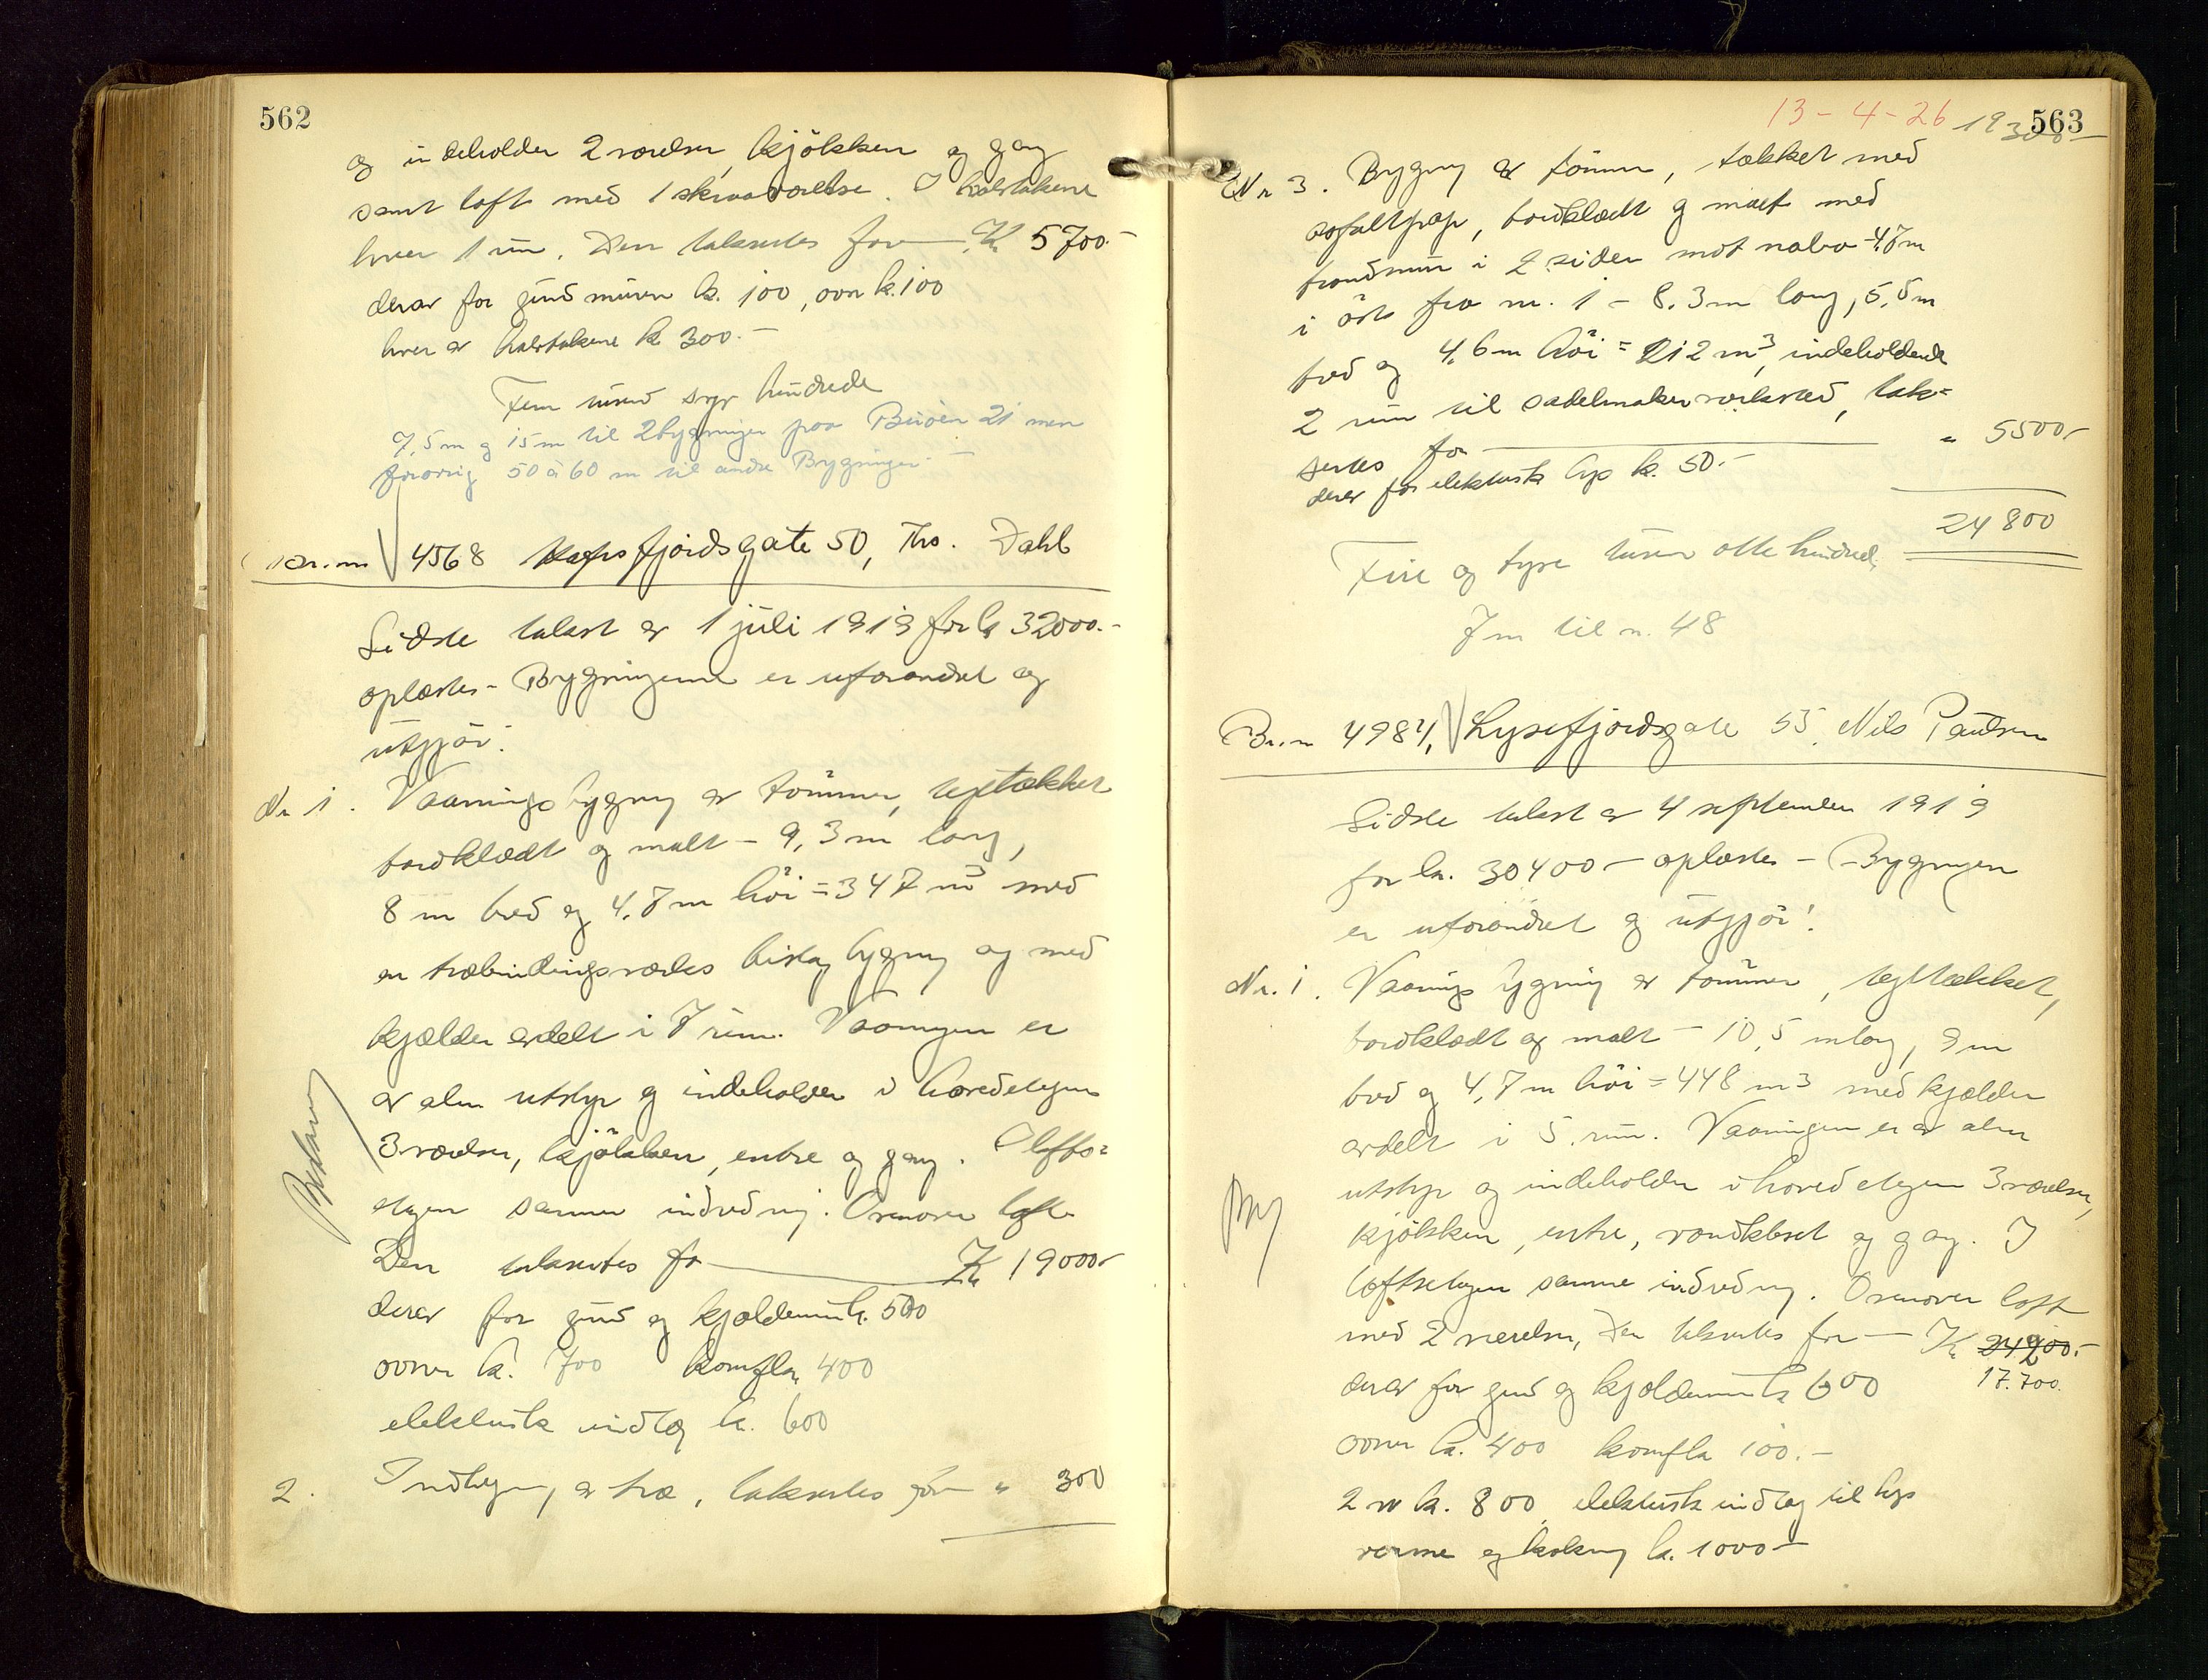 562
og indeholder 2 værelser, kjökken og gang
samt loft med 1 skraaværelse. I halvtakene
hver 1 rum. Den takseres for K. 5700.-
derav for grundmuren k. 100, ovn k. 100
hver av halvtakene k 300.-
Fem tusind syv hundrede
7,5 m og 15 m til 2 bygninger paa Buöen 21 men
forövrig 50 à 60 m til andre Bygninger.-
Br. nr 4568 Hafrsfjordsgate 50, Ths. Dahl
Sidste takst av 1 juli 1919 for k 32000.-
oplæstes - Bygningerne er uforandret og
utgjör:
Nr 1. Vaaningsbygning av tömmer, tegltækket
bordklædt og malt - 9,3 m lang,
8 m bred og 4,7 m höi = 347 m3 med
en træbindingsverks bislag bygning og med
kjælder avdelt i 7 rum. Vaaningen er
av alm utstyr og indeholder i hovedetagen
3 værelser, kjökken, entre og gang. I lofts=
etagen samme indredning. Ovenover loft
Den takseres for K 19000-
derav for grund og kjældermur k. 500
ovner k. 700 komfur 400
elektrisk indlæg k. 600
2. Indhegning av træ, takseres for " 300
13-4-26 19300-
563
Nr 3. Bygning av tömmer, tækket med
asfaltpap, bordklædt og malt med
brandmur i 2 sider mot nabo - 4,7 m
i öst fra nr. 1 - 8.3 m lang, 5,5 m
bred og 4,6 m höi = 212 m3, indeholdende
2 rum til sadelmakerverksted, tak=
seres for " 5500,-
derav for elektrisk lys k. 50.-
24800
Fire og tyve tusen otte hundred,
7 m til n. 48
Br. n 4984, Lysefjordsgate 55. Nils Paulsen
Sidste takst av 4 september 1919
for kr. 30400 - oplæstes - Bygningen
er uforandret og utgjör:
Nr. 1. Vaaningsbygning av tömmer, tegltækket,
bordklædt og malt - 10,5 m lang, 9 m
bred og 4,7 m höi = 448 m3 med kjælder
avdelt i 5 rum. Vaaningen er av alm
utstyr og indeholder i hovedetagen 3 værelser,
kjökken, entre, vandkloset og gang. I
loftsetagen samme indredning. Ovenover loft
med 2 værelser, den takseres for - K. 24900.-
17.700.
derav for grund og kjældermur k 600
ovner k. 400 komfur 100.-
2 W k. 800, elektrisk indlæg til lys
varme og kokning k. 1000-